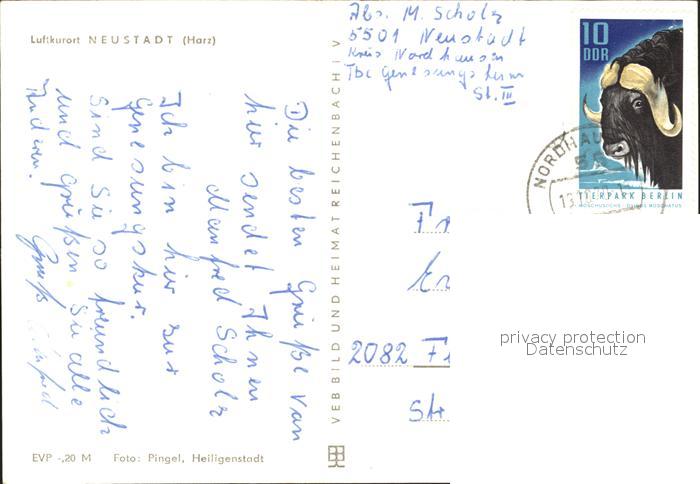 Luftkurort NEUSTADT (Harz)
Die besten Grüße von
hier sendet Ihnen
Manfred Scholz
Ich bin hier zur
Genesungskur.
Sind Sie so freundlich
und grüßen Sie alle
Anderen.
Gruß Manfred
EVP -,20 M Foto: Pingel, Heiligenstadt
VEB BILD UND HEIMAT REICHENBACH I V
Abs. M. Scholz
5501 Neustadt
Kreis Nordhausen
Tbc Genesungsheim
St. III
10
DDR
TIERPARK BERLIN
MOSCHUSOCHSE · OVIBOS MOSCHATUS
NORDHAU
55
Fr
Er
2082 Fr
Str
privacy protection
Datenschutz